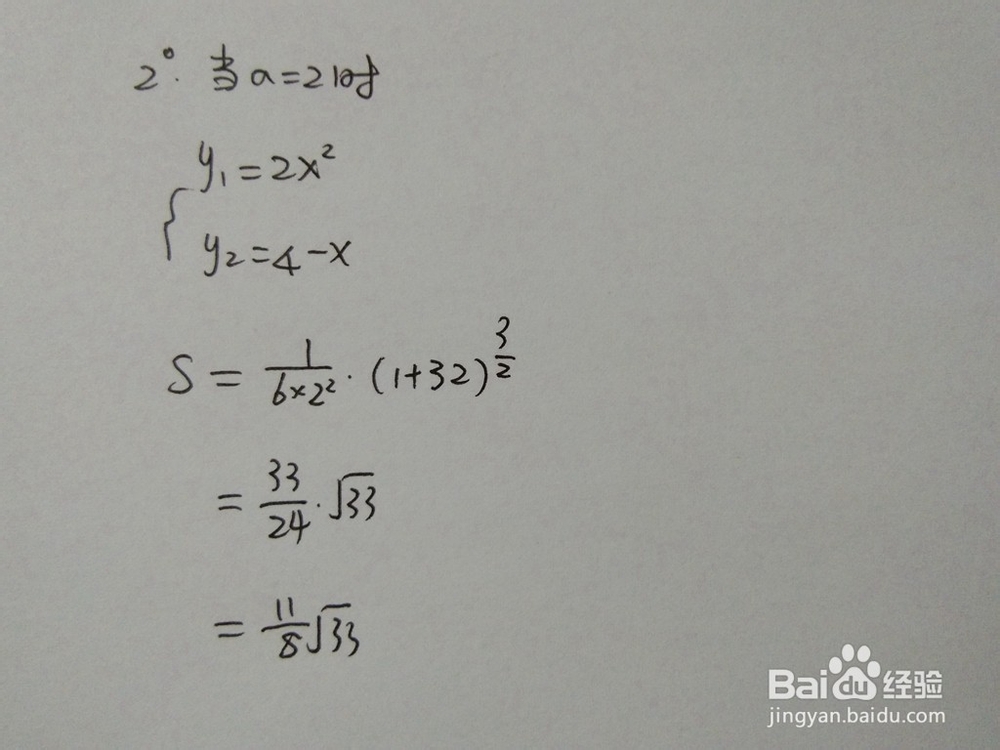 2°. 当a=2时
y₁=2x²
y₂=4-x
S = 1/(6×2²) · (1+32)^(3/2)
= 33/24 · √33
= 11/8 √33
Baidu 经验
jingyan.baidu.com